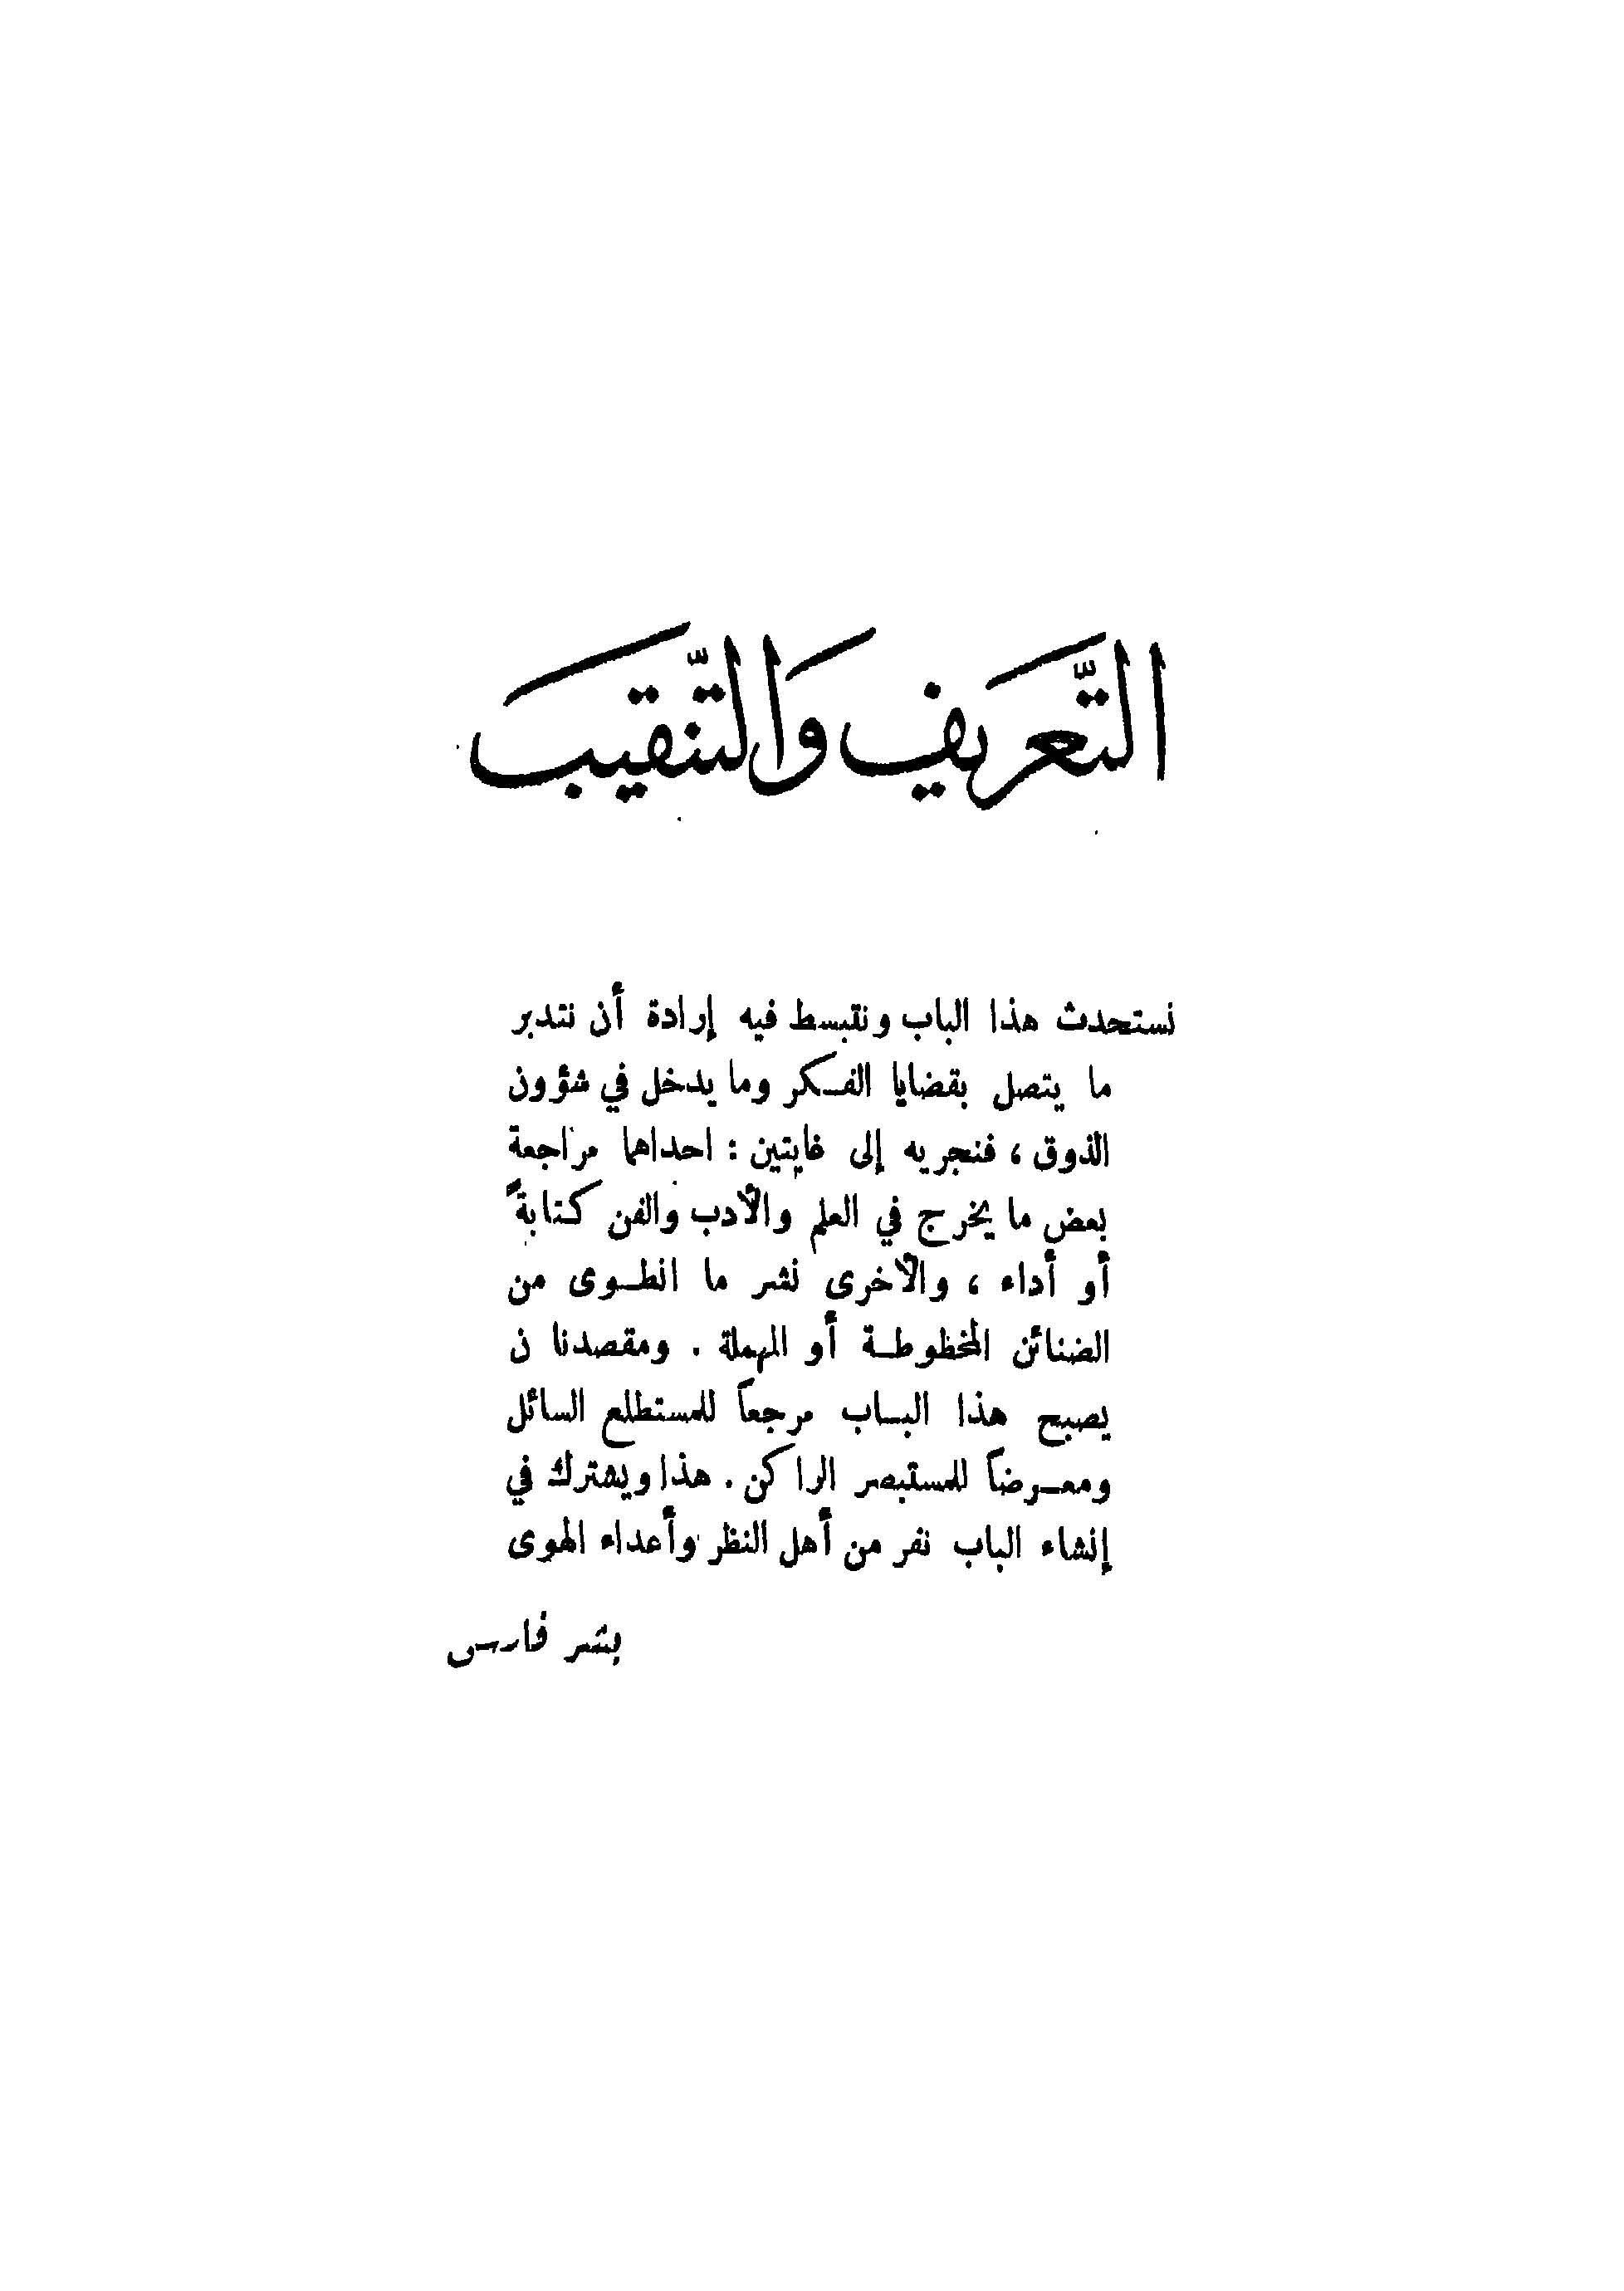 التَّعَريف وَالتَّنقيبَ
نستحدث هذا الباب ونتبسط فيه إرادة أن نتدبر
ما يتصل بقضايا الفكر وما يدخل في شؤون
الذوق ، فنجريه إلى غايتين : احداهما مراجعة
بعض ما يخرج في العلم والأدب والفن كتابةً
أو أداء ، والأخرى نشر ما انطوى من
الضنائن المخطوطة أو المهملة . ومقصدنا ن
يصبح هذا الباب مرجعاً للمستطلع السائل
ومعرضاً للمستبصر الراكن . هذا ويشترك في
إنشاء الباب نفر من أهل النظر وأعداء الهوى
بشر فارس